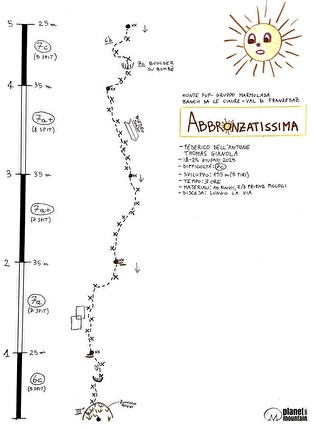 5
25m
7c
(5 SPIT)
6b
7c BOULDER
SU BOMBÉ
4
35m
7a+
(8 SPIT)
3
35m
7a+
(7 SPIT)
2
35m
7a
(7 SPIT)
1
25m
6c
(5 SPIT)
MONTE FOP - GRUPPO MARMOLADA
BANCH DA LE CIAURE - VAL DI FRANZEDAZ
ABBRONZATISSIMA
- FEDERICO DELL'ANTONE
THOMAS GIANOLA
- 18-25 GIUGNO 2025
- DIFFICOLTÀ: 7c
- SVILUPPO: 155m (5 TIRI)
- TEMPO: 3 ORE
- MATERIALI: 10 RINVII, 2/3 FRIEND PICCOLI
- DISCESA: LUNGO LA VIA
planet
mountain